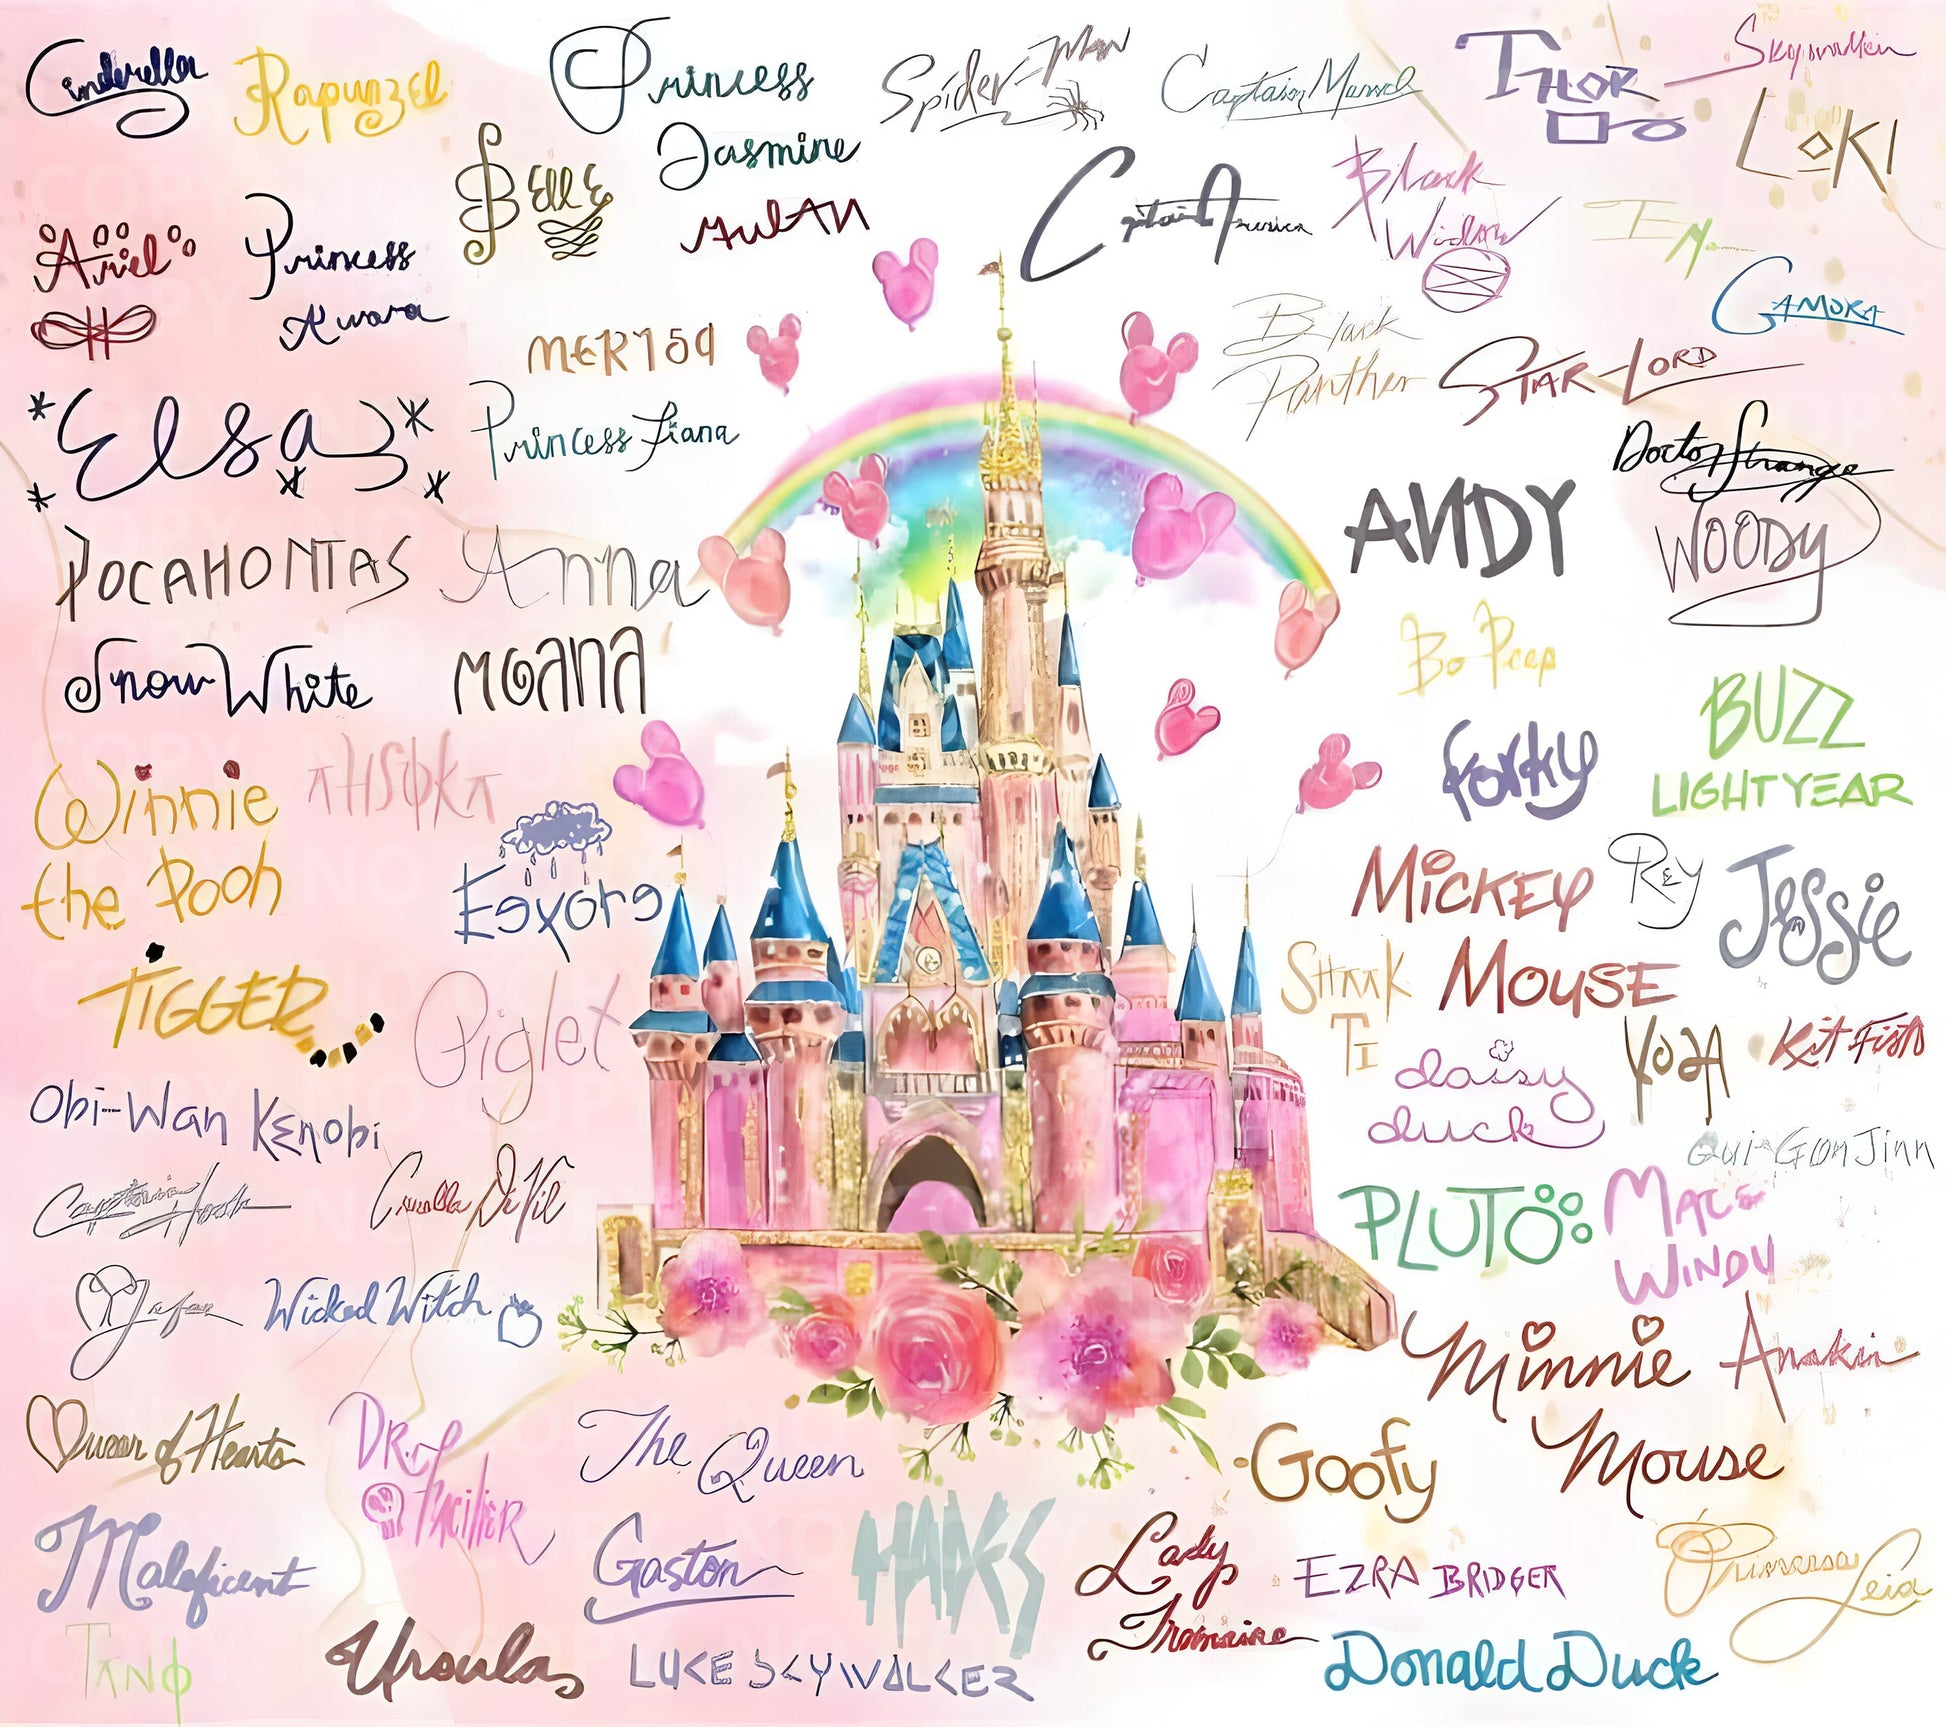 Cinderella
Rapunzel
Princess
Jasmine
Spider-Man
Captain Marvel
THOR
Skywalker
LOKI
BEllE
MulAN
Captain America
Black
Widow
Ariel
Princess
Aurora
GAMORA
MERISA
Black
Panther
STAR-LORD
Elsa
Princess Tiana
Doctor Strange
ANDY
WOODY
POCAHONTAS
Anna
Bo Peep
Snow White
MOANA
BUZZ
LIGHTYEAR
forky
Winnie
the Pooh
AHSOKA
Eeyore
MiCKEY
MOUSE
REY
Jessie
TIGGER
Piglet
SHAAK
TI
daisy
duck
YODA
Kit Fisto
Obi-Wan Kenobi
Qui-Gon Jinn
Captain Hook
Cruella De Vil
PLUTO
MACE
WINDU
Jafar
Wicked Witch
Minnie
Mouse
Anakin
Queen of Hearts
DR.
Facilier
The Queen
Goofy
Maleficent
Gaston
HADES
Lady
Tremaine
EZRA BRIDGER
Princess Leia
TANO
Ursula
LUKE SKYWALKER
Donald Duck